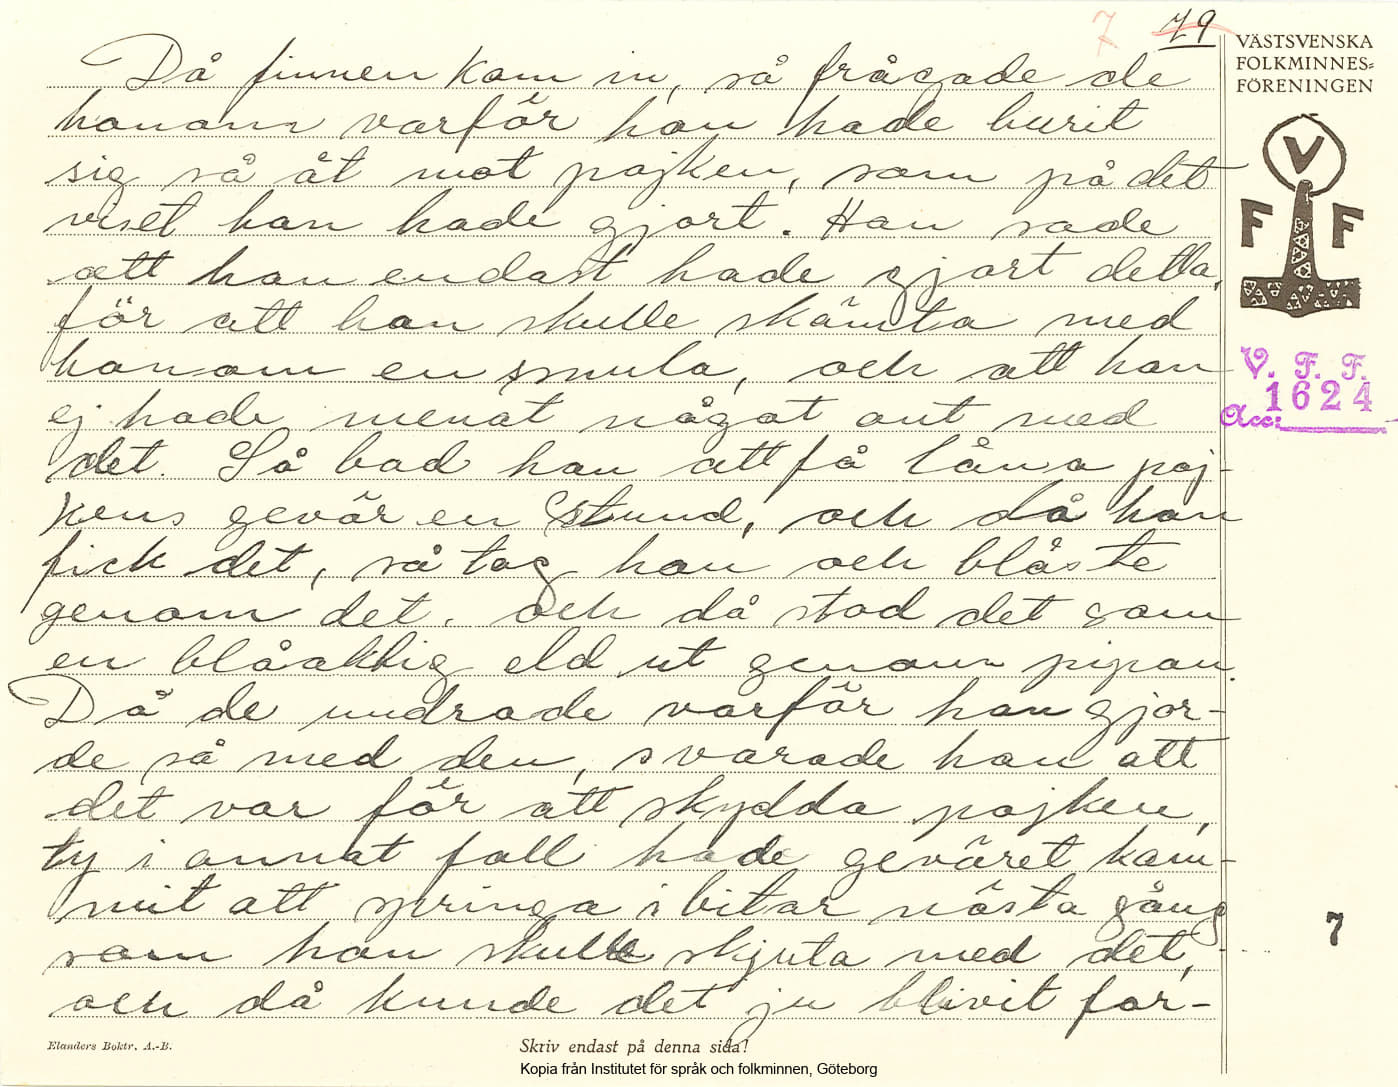 7 79
Då finnen kom in, så frågade de
honom varför han hade burit
sig så åt mot pojken, som på det
viset han hade gjort. Han sade
att han endast hade gjort detta,
för att han skulle skämta med
honom en smula, och att han
ej hade menat något ont med
det. Så bad han att få låna poj-
kens gevär en stund, och då han
fick det, så tog han och blåste
genom det, och då stod det som
en blåaktig eld ut genom pipan.
Då de undrade varför han gjor-
de så med den, svarade han att
det var för att skydda pojken,
ty i annat fall hade geväret kom-
mit att springa i bitar nästa gång
som han skulle skjuta med det,
och då kunde det ju blivit for-
VÄSTSVENSKA
FOLKMINNES=
FÖRENINGEN
V
F F
V. F. F.
1624
Acc:
7
Elanders Boktr. A.-B.
Skriv endast på denna sida!
Kopia från Institutet för språk och folkminnen, Göteborg